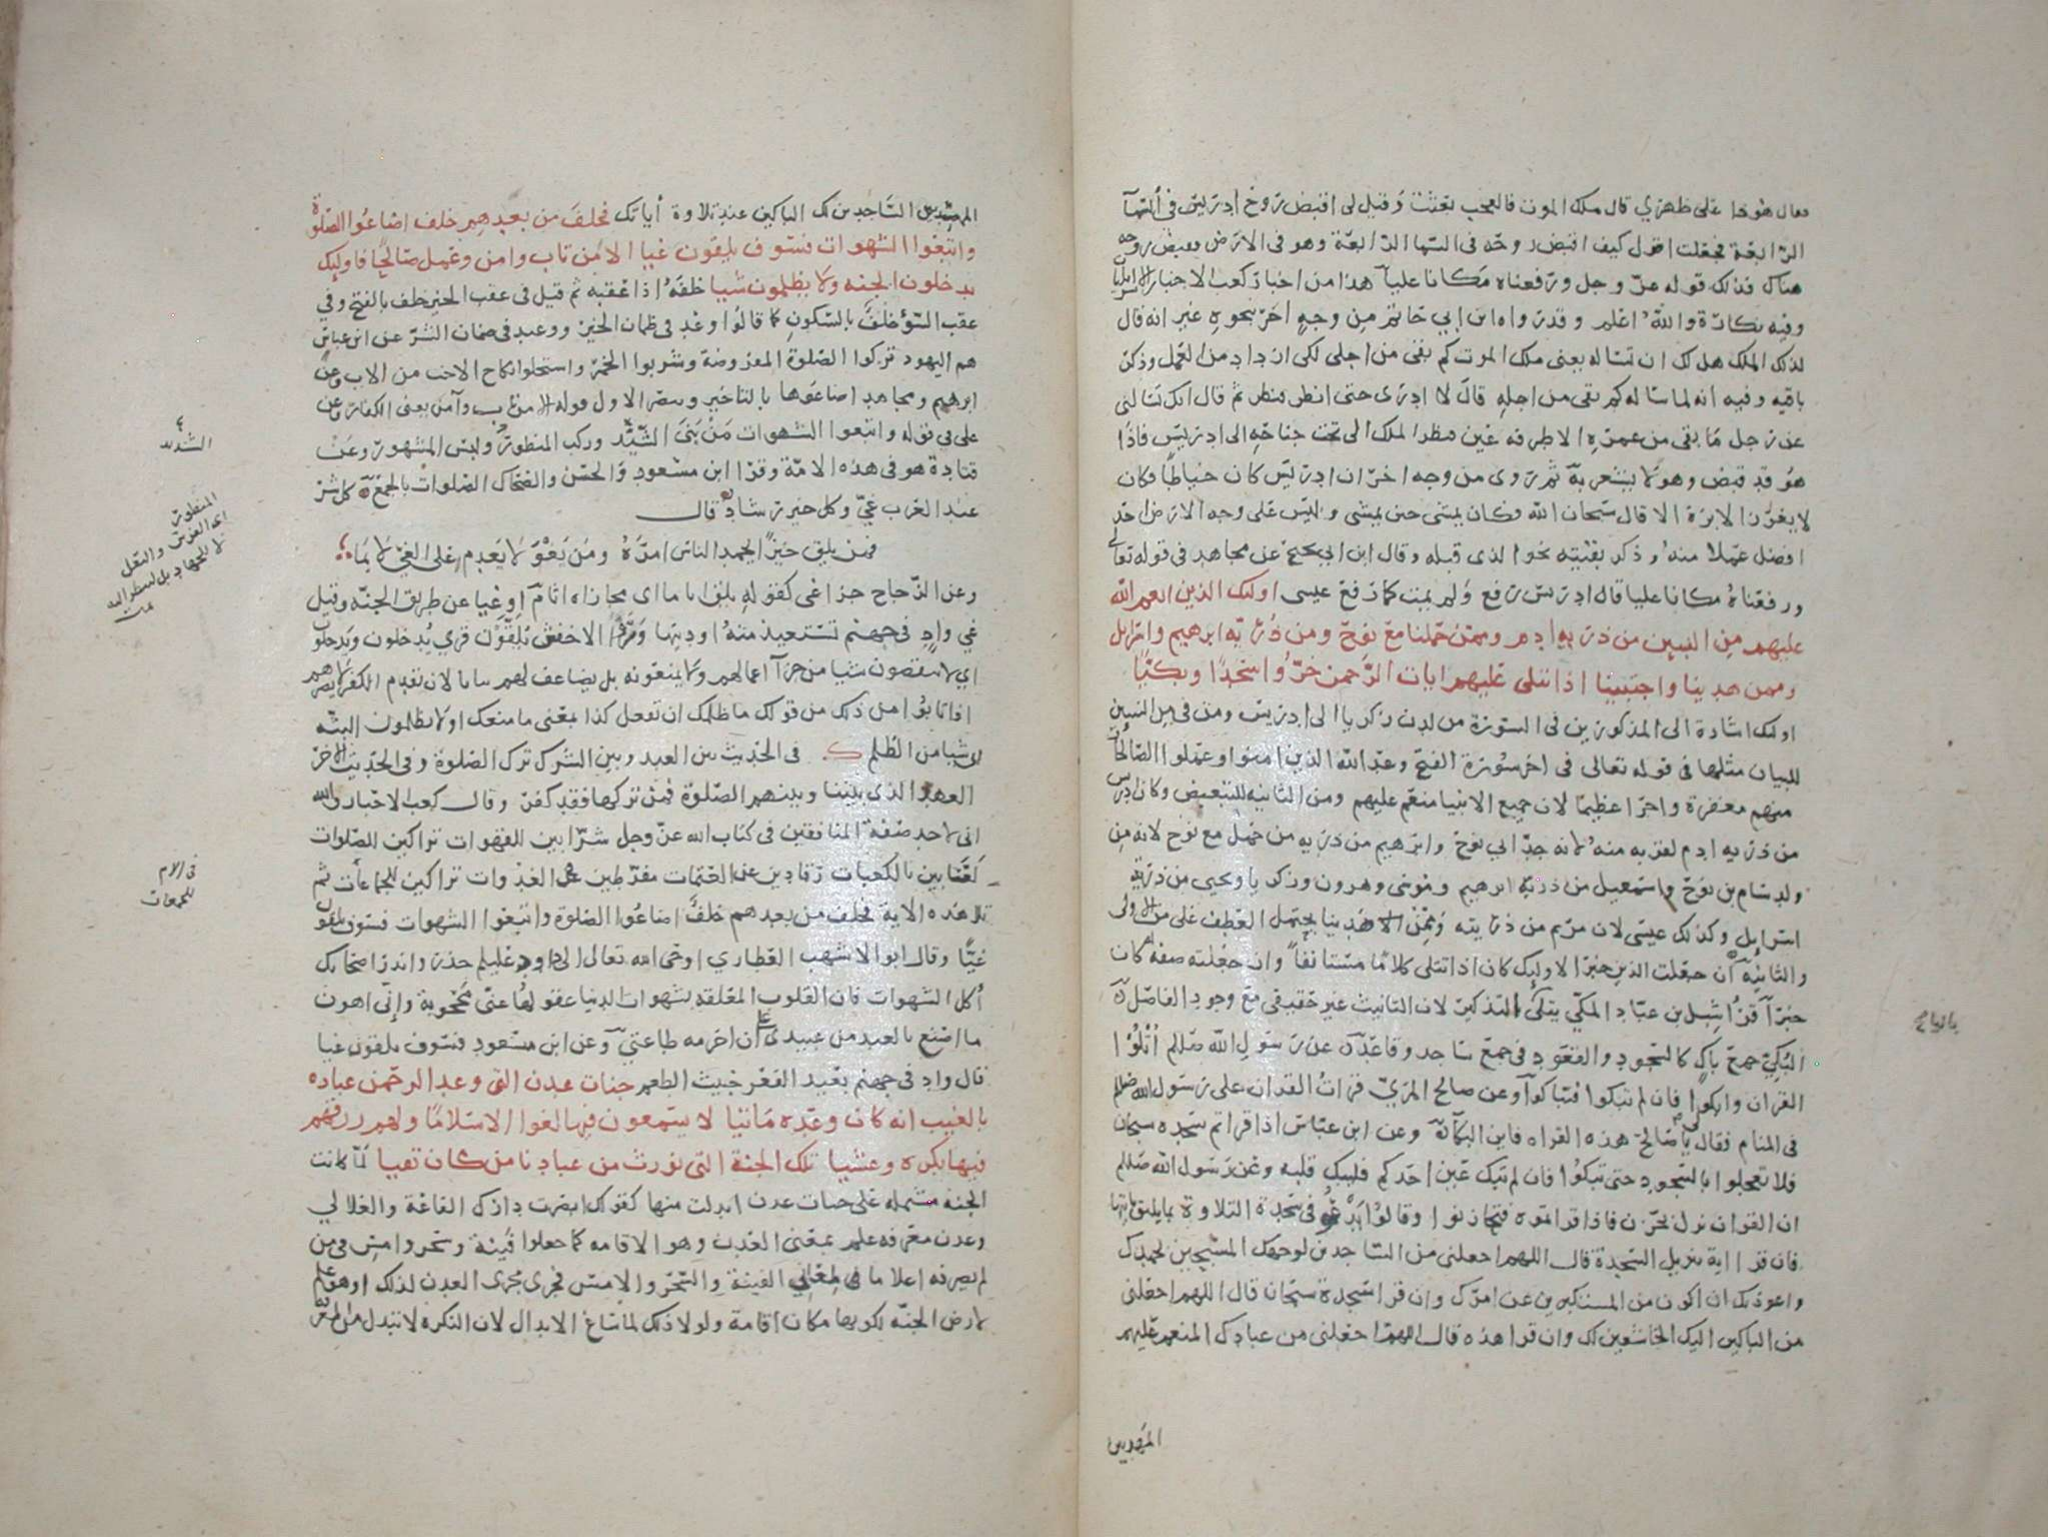 فقال هوذا على ظهري قال ملك الموت فالعجب بعثت وقيل لي اقبض روح ادريس في السما
الرابعة فجعلت اقول كيف اقبض روحه في السما الرابعة وهو في الارض فقبض روحه
هناك فذلك قوله عز وجل ورفعناه مكانا عليا هذا من اخبار كعب الاحبار الاسرايليات
وفيه نكارة والله اعلم وقد رواه ابن ابي حاتم من وجه اخر بنحوه غير انه قال
لذلك الملك هل لك ان تساله يعني ملك الموت كم بقي من اجلي لكي ازداد من العمل وذكر
باقيه وفيه انه لما ساله كم بقي من اجله قال لا ادري حتى انظر فنظر ثم قال انك تسالني
عن رجل ما بقي من عمره الا طرفة عين فنظر الملك الى تحت جناحه الى ادريس فاذا
هو قد قبض وهو لا يشعر به ثم روى من وجه اخر ان ادريس كان خياطا فكان
لا يغرز الابرة الا قال سبحان الله فكان يمشي حين يمشي وليس على وجه الارض احد
افضل عملا منه وذكر بقيته نحو الذي قبله وقال ابن ابي نجيح عن مجاهد في قوله تعالى
ورفعناه مكانا عليا قال ادريس رفع ولم يمت كما رفع عيسى اوليك الذين انعم الله
عليهم من النبيين من ذرية ادم وممن حملنا مع نوح ومن ذرية ابرهيم واسرايل
وممن هدينا واجتبينا اذا تتلى عليهم ايات الرحمن خروا سجدا وبكيا
اوليك اشارة الى المذكورين في السورة من لدن زكريا الى ادريس ومن في من النبيين
للبيان مثلها في قوله تعالى في اخر سورة الفتح وعد الله الذين امنوا وعملوا الصالحات
منهم مغفرة واجرا عظيما لان جميع الانبيا منعم عليهم ومن الثانية للتبعيض وكان ادريس
من ذرية ادم لقربه منه لانه جد ابي نوح وابرهيم من ذرية من حمل مع نوح لانه من
ولد سام بن نوح واسمعيل من ذرية ابرهيم وموسى وهرون وزكريا ويحيى من ذرية
اسرايل وكذلك عيسى لان مريم من ذريته وممن هدينا يحتمل العطف على من الاولى
والثانية ان جعلت الذين خبرا لاوليك كان اذا تتلى كلاما مستانفا وان جعلته صفة له كان
خبرا قرا شبل بن عباد المكي يتلى بالتذكير لان التانيث غير حقيقي مع وجود الفاصل
البكي جمع باك كالسجود والقعود في جمع ساجد وقاعد عن رسول الله صللم اتلوا
القران وابكوا فان لم تبكوا فتباكوا وعن صالح المري قرات القران على رسول الله صللم
في المنام فقال لي يا صالح هذه القراه فاين البكا وعن ابن عباس اذا قراتم سجدة سبحان
فلا تعجلوا بالسجود حتى تبكوا فان لم تبك عين احدكم فليبك قلبه وعن رسول الله صللم
ان القران نزل بحزن فاذا قراتموه فتحازنوا وقالوا يدعو في سجدة التلاوة بما يليق بايتها
فان قرا اية تنزيل السجدة قال اللهم اجعلني من الساجدين لوجهك المسبحين بحمدك
واعوذ بك ان اكون من المستكبرين عن امرك وان قرا سجدة سبحان قال اللهم اجعلني
من الباكين اليك الخاشعين لك وان قرا هذه قال اللهم اجعلني من عبادك المنعم عليهم
المهديين
المهديين الساجدين لك الباكين عند تلاوة اياتك فخلف من بعدهم خلف اضاعوا الصلوة
واتبعوا الشهوات فسوف يلقون غيا الا من تاب وامن وعمل صالحا فاوليك
يدخلون الجنه ولا يظلمون شيا خلفه اذا عقبه ثم قيل في عقب الخير خلف بالفتح وفي
عقب السوء خلف بالسكون كما قالوا وعد في ضمان الخير ووعيد في ضمان الشر عن ابن عباس
هم اليهود تركوا الصلوة المفروضة وشربوا الخمر واستحلوا نكاح الاخت من الاب وعن
ابرهيم ومجاهد اضاعوها بالتاخير وينصر الاول قوله الا من تاب وآمن يعني الكفار وعن
علي في قوله واتبعوا الشهوات من بنى الشديد وركب المنظور ولبس المشهور وعن
قتادة هو في هذه الامة وقرا ابن مسعود والحسن والضحاك الصلوات بالجمع كل شر
عند العرب غي وكل خير رشاد قال
فمن يلق خيرا يحمد الناس امره ومن يغو لا يعدم على الغي لايما
وعن الزجاج جزا غي كقوله يلق اثاما اي مجازاه اثام او غيا عن طريق الجنه وقيل
غي واد في جهنم تستعيذ منه اوديتها وقرا الاخفش يلقون قري يدخلون ويدخلون
اي لا ينقصون شيا من جزآ اعمالهم ولا يمنعونه بل يضاعف لهم بيانا لان تقدم الكفر لا يضرهم
اذا تابوا من ذلك من قولك ما ظلمك ان تفعل كذا بمعنى ما منعك او لا يظلمون البتة
اي شيا من الظلم ك في الحديث بين العبد وبين الشرك ترك الصلوة وفي الحديث الاخر
العهد الذي بيننا وبينهم الصلوة فمن تركها فقد كفر وقال كعب الاحبار والله
اني لاجد صفة المنافقين في كتاب الله عز وجل شرابين للقهوات تراكين للصلوات
لعابين بالكعبات رقادين عن العتمات مفرطين في الغدوات تراكين للجماعات ثم
تلا هذه الاية فخلف من بعدهم خلف اضاعوا الصلوة واتبعوا الشهوات فسوف يلقون
غيا وقال ابو الاشهب العطاري اوحى الله تعالى الى داود عليلم حذر وانذر اصحابك
اكل الشهوات فان القلوب المعلقه بشهوات الدنيا عقولها عني محجوبة واني اهون
ما اصنع بالعبد من عبيدي ان احرمه طاعتي وعن ابن مسعود فسوف يلقون غيا
قال واد في جهنم بعيد القعر خبيث الطعم جنات عدن التي وعد الرحمن عباده
بالغيب انه كان وعده ماتيا لا يسمعون فيها لغوا الا سلاما ولهم رزقهم
فيها بكرة وعشيا تلك الجنة التي نورث من عبادنا من كان تقيا لما كانت
الجنه مشتمله على جنات عدن ابدلت منها كقولك ابصرت دارك القاعة والعلالي
وعدن معرفه علم بمعنى العدن وهو الاقامه كما جعلوا فينة وسحر وامس في من
لم يصرفه اعلاما في معاني الفينة والسحر والامس فجرى مجرى العدن لذلك او هو علم
لارض الجنه لكونها مكان اقامة ولولا ذلك لما ساغ الابدال لان النكره لا تبدل من المعرفة
الشديد
المنظور
اي الفرس والبغل
لا للجهاد بل لينظر اليه
في الام
للجمعات